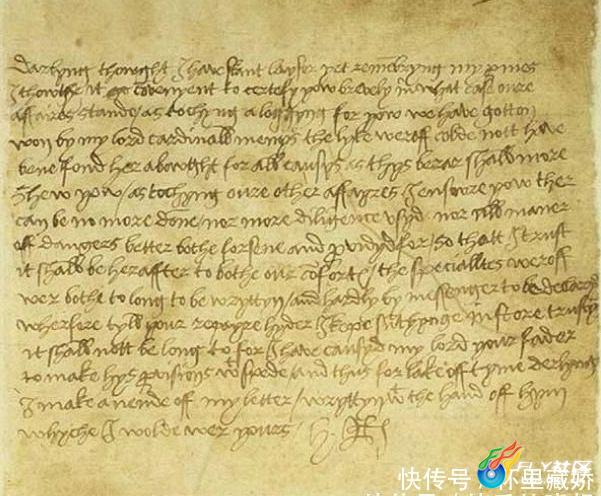 Darlyng thowght I have skant laysor yet remembryng my promes
I thowght it covenyent to certefy yow brevely in what case oure
affaires stande / as tochyng a loggyng for yow we have gotton
won by my lord cardinalls menys the lyke weroff colde nott have
bene fond her abowght for all causys as thys berar shall more
shew yow / as tochyng oure other affayres I ensure yow ther
can be no more done / nor more diligence usyd nor all maner
off dangers better bothe forsene and providyd for / so thatt I trust
it shall be heraffter to bothe our comforte / the specialltes weroff
wer bothe to long to be wryttyn / and hardly by messenger to be declaryd
wherfore tyll your repayre hyder I kepe summthynge in store trustyng
it shall nott be long to for I have causyd my lord your fader
to make hys provisions with spede and thus for lake off tyme derlyng
I make a nende off my letter / wryttyn with the hand off hym
whyche I wolde wer yours / H R
快传号/怀里藏娇